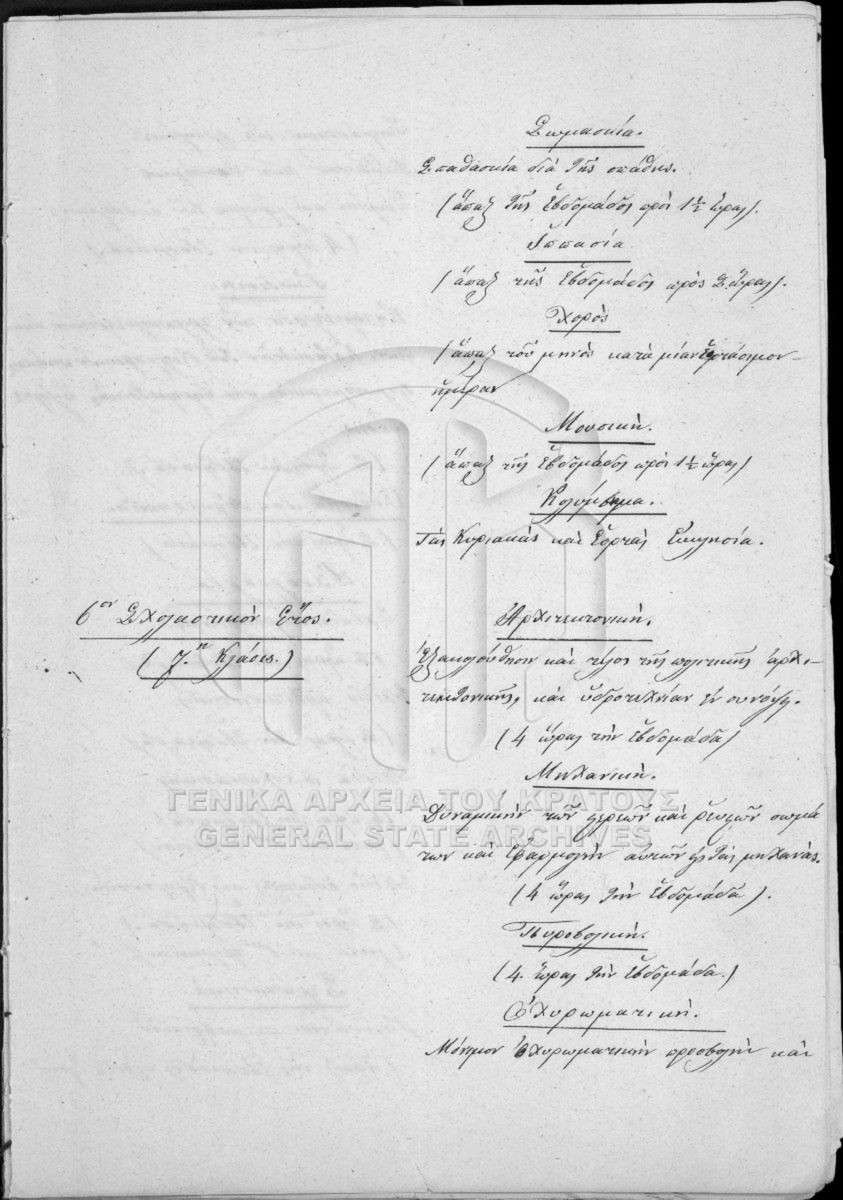 Σωμασκία.
Σπαθασκία διὰ τῆς σπάθης.
(ἅπαξ τῆς ἑβδομάδος πρὸς 1½ ὥρας).
Ἱππασία
(ἅπαξ τῆς ἑβδομάδος πρὸς 2. ὥρας).
Χορὸς
(ἅπαξ τοῦ μηνὸς κατὰ μίαν ἑορτάσιμον
ἡμέραν
Μουσική.
(ἅπαξ τῆς ἑβδομάδος πρὸς 1½ ὥρας)
Κολύμβημα.
Τὰς Κυριακὰς καὶ Ἑορτὰς Ἐκκλησία.
6ον Σχολαστικὸν Ἔτος.
(7.η Κλάσις.)
Ἀρχιτεκτονική.
Ἐξακολούθησις καὶ τέλος τῆς πολιτικῆς ἀρχι-
τεκτονικῆς, καὶ ὑδροτεχνίαν ἐν συνόψει.
(4 ὥρας τὴν ἑβδομάδα)
Μηχανική.
Δυναμικὴν τῶν στερεῶν καὶ ῥευστῶν σωμά
των καὶ ἐφαρμογὴν αὐτῶν εἰς τὰς μηχανάς.
(4 ὥρας τὴν ἑβδομάδα).
Πυροβολική.
(4. ὥρας τὴν ἑβδομάδα.)
Ὀχυρωματική.
Μόνιμον ὀχυρωματικὴν προσβολὴν καὶ
ΓΕΝΙΚΑ ΑΡΧΕΙΑ ΤΟΥ ΚΡΑΤΟΥΣ
GENERAL STATE ARCHIVES